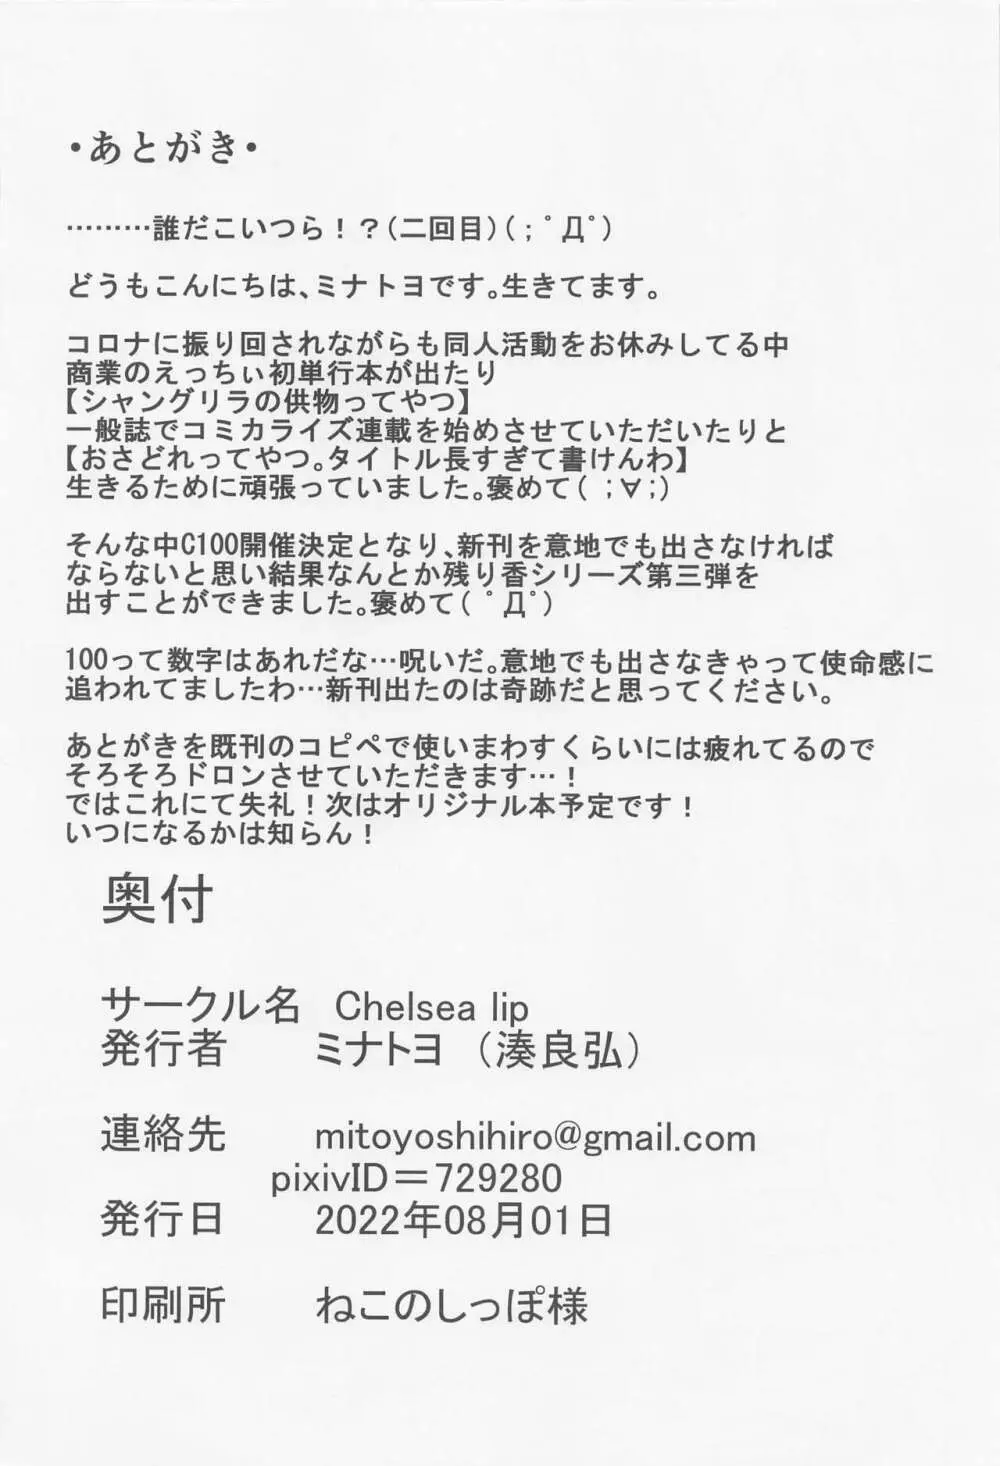 ・あとがき・
………誰だこいつら！？(二回目)(；ﾟДﾟ)
どうもこんにちは、ミナトヨです。生きてます。
コロナに振り回されながらも同人活動をお休みしてる中
商業のえっちぃ初単行本が出たり
【シャングリラの供物ってやつ】
一般誌でコミカライズ連載を始めさせていただいたりと
【おさどれってやつ。タイトル長すぎて書けんわ】
生きるために頑張っていました。褒めて( ;∀;)
そんな中C100開催決定となり、新刊を意地でも出さなければ
ならないと思い結果なんとか残り香シリーズ第三弾を
出すことができました。褒めて( ﾟДﾟ)
100って数字はあれだな…呪いだ。意地でも出さなきゃって使命感に
追われてましたわ…新刊出たのは奇跡だと思ってください。
あとがきを既刊のコピペで使いまわすくらいには疲れてるので
そろそろドロンさせていただきます…！
ではこれにて失礼！次はオリジナル本予定です！
いつになるかは知らん！
奥付
サークル名　Chelsea lip
発行者　ミナトヨ （湊良弘）
連絡先　mitoyoshihiro@gmail.com
pixivID＝729280
発行日　2022年08月01日
印刷所　ねこのしっぽ様